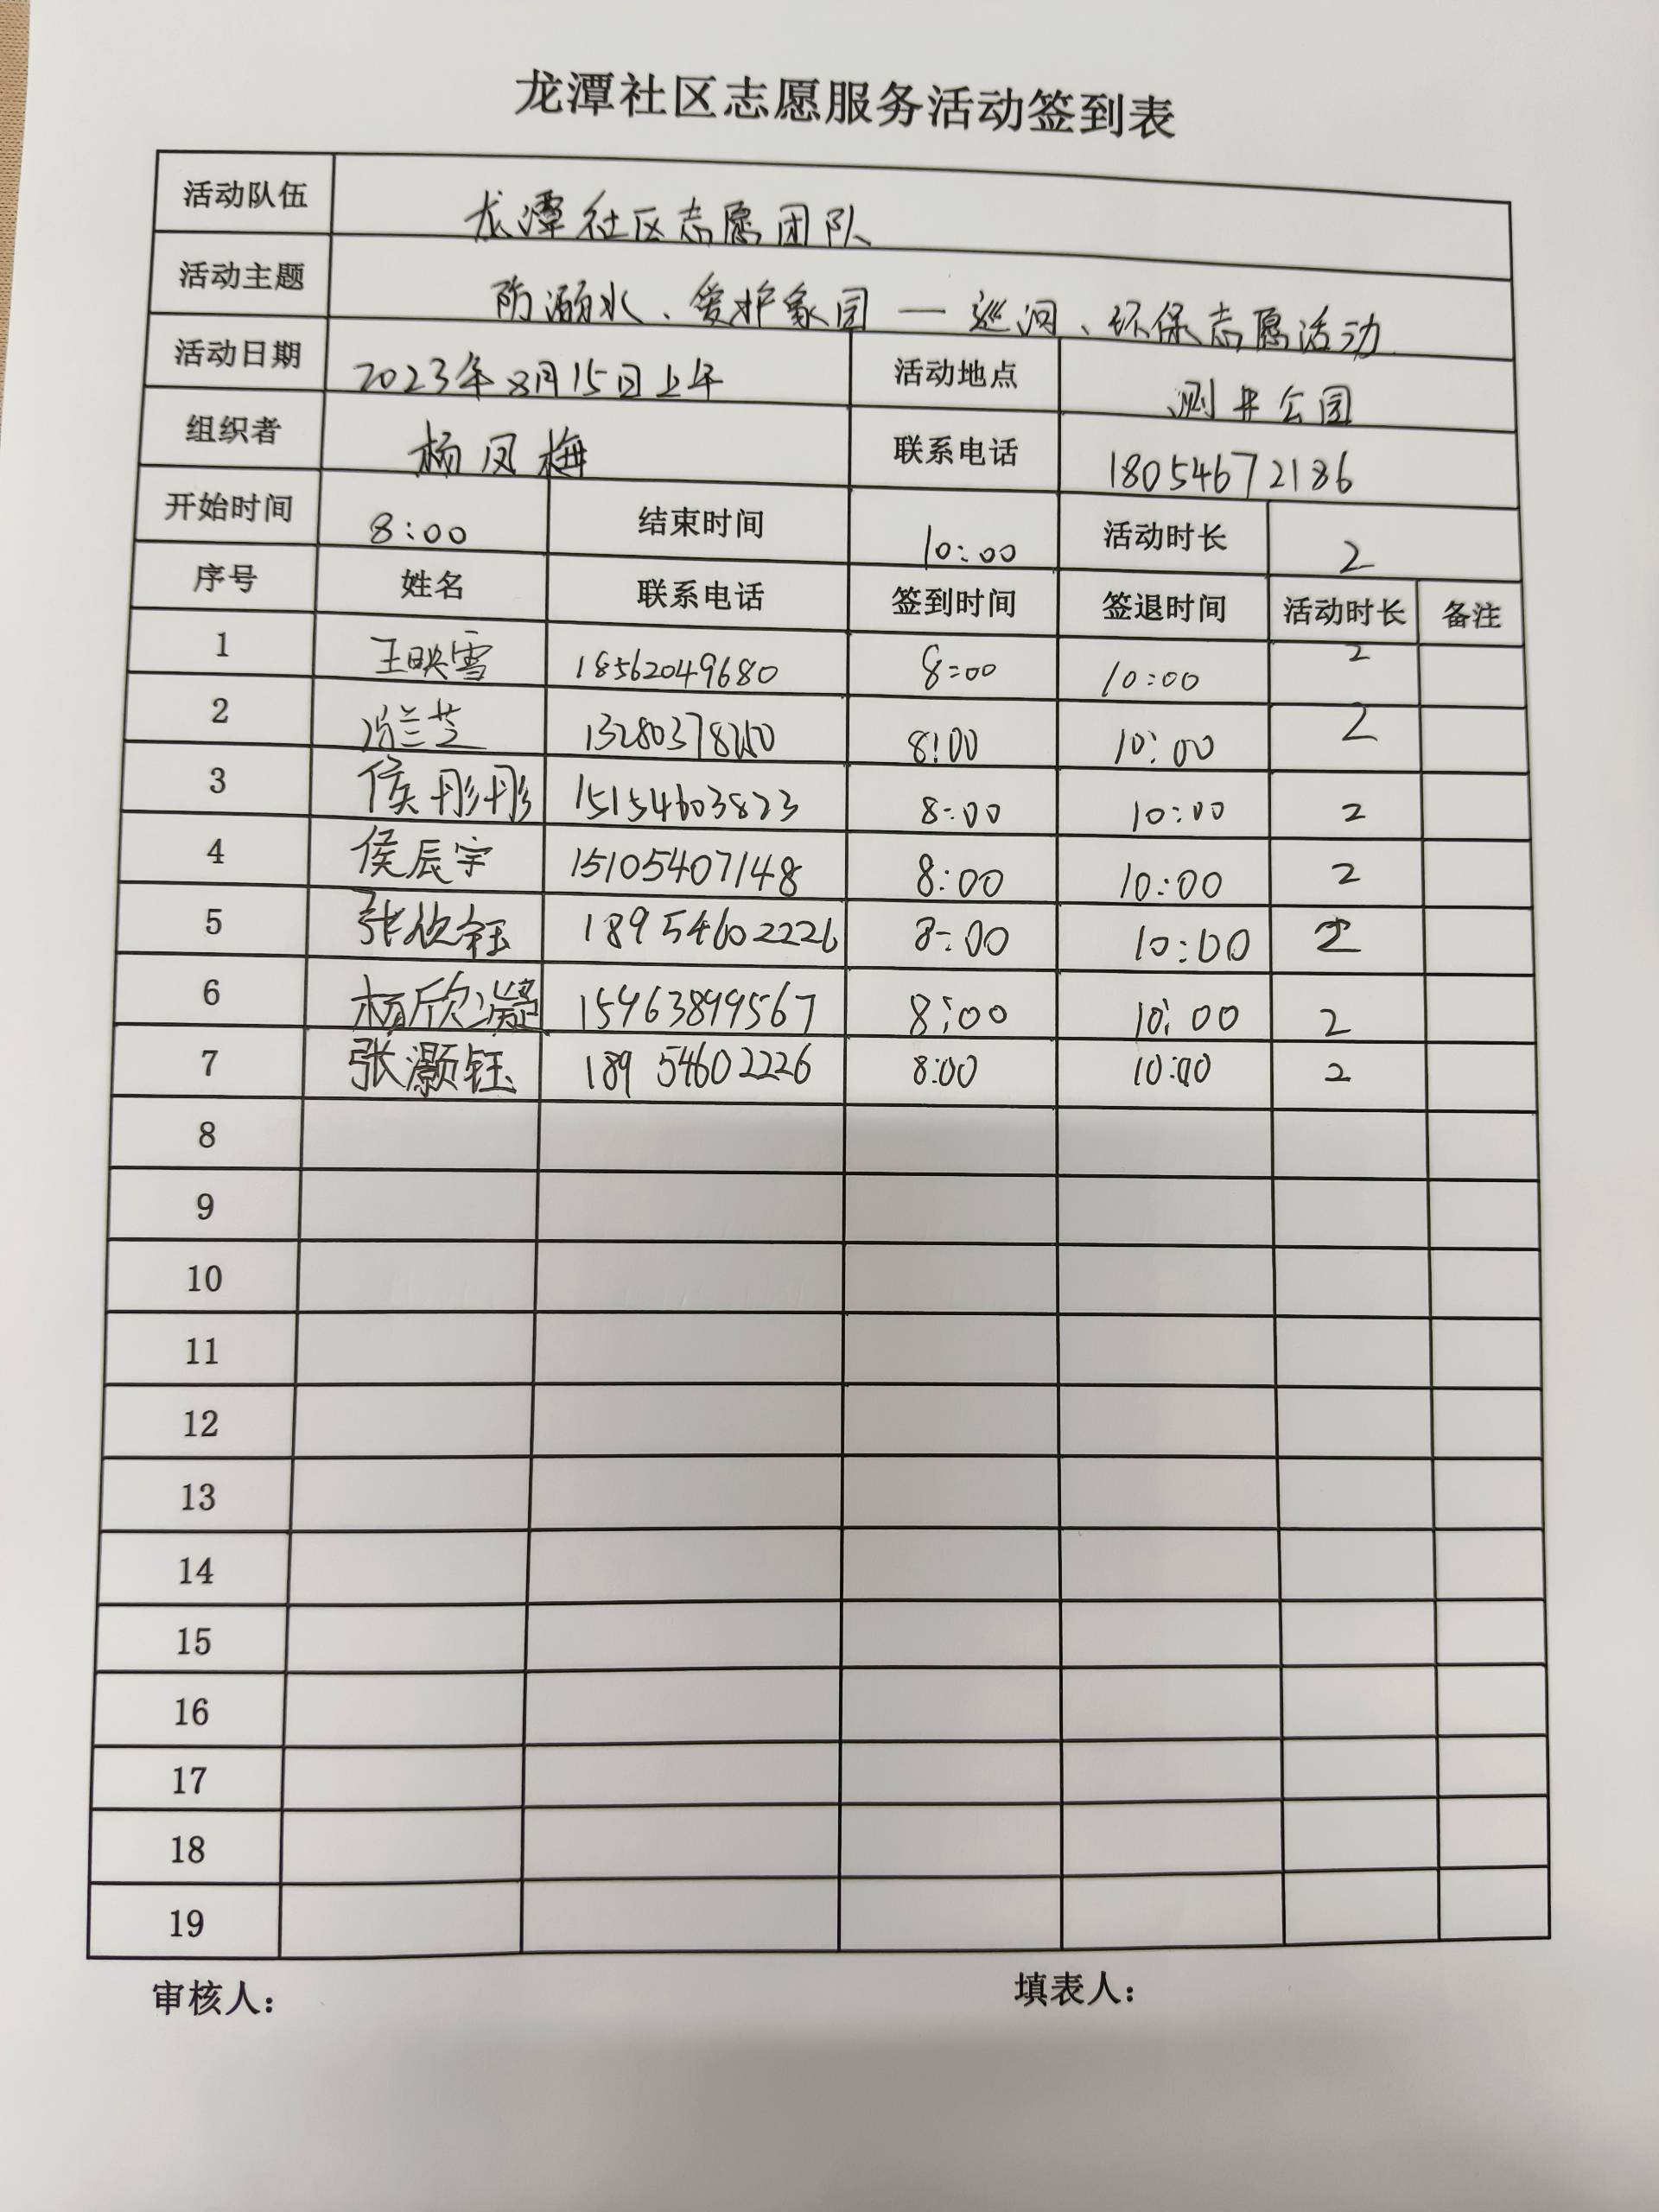 龙潭社区志愿服务活动签到表
活动队伍 龙潭社区志愿团队
活动主题 防溺水、爱护家园—巡河、环保志愿活动
活动日期 2023年8月15日上午 活动地点 测井公园
组织者 杨凤梅 联系电话 18054672186
开始时间 8:00 结束时间 10:00 活动时长 2
序号 姓名 联系电话 签到时间 签退时间 活动时长 备注
1 王映雪 18562049680 8:00 10:00 2
2 冯兰芝 8:00 10:00 2
3 侯彤彤 15154603823 8:00 10:00 2
4 侯辰宇 15105407148 8:00 10:00 2
5 张欣钰 18954602226 8:00 10:00 2
6 杨欣凝 15963899567 8:00 10:00 2
7 张灏钰 18954602226 8:00 10:00 2
8
9
10
11
12
13
14
15
16
17
18
19
审核人： 填表人：